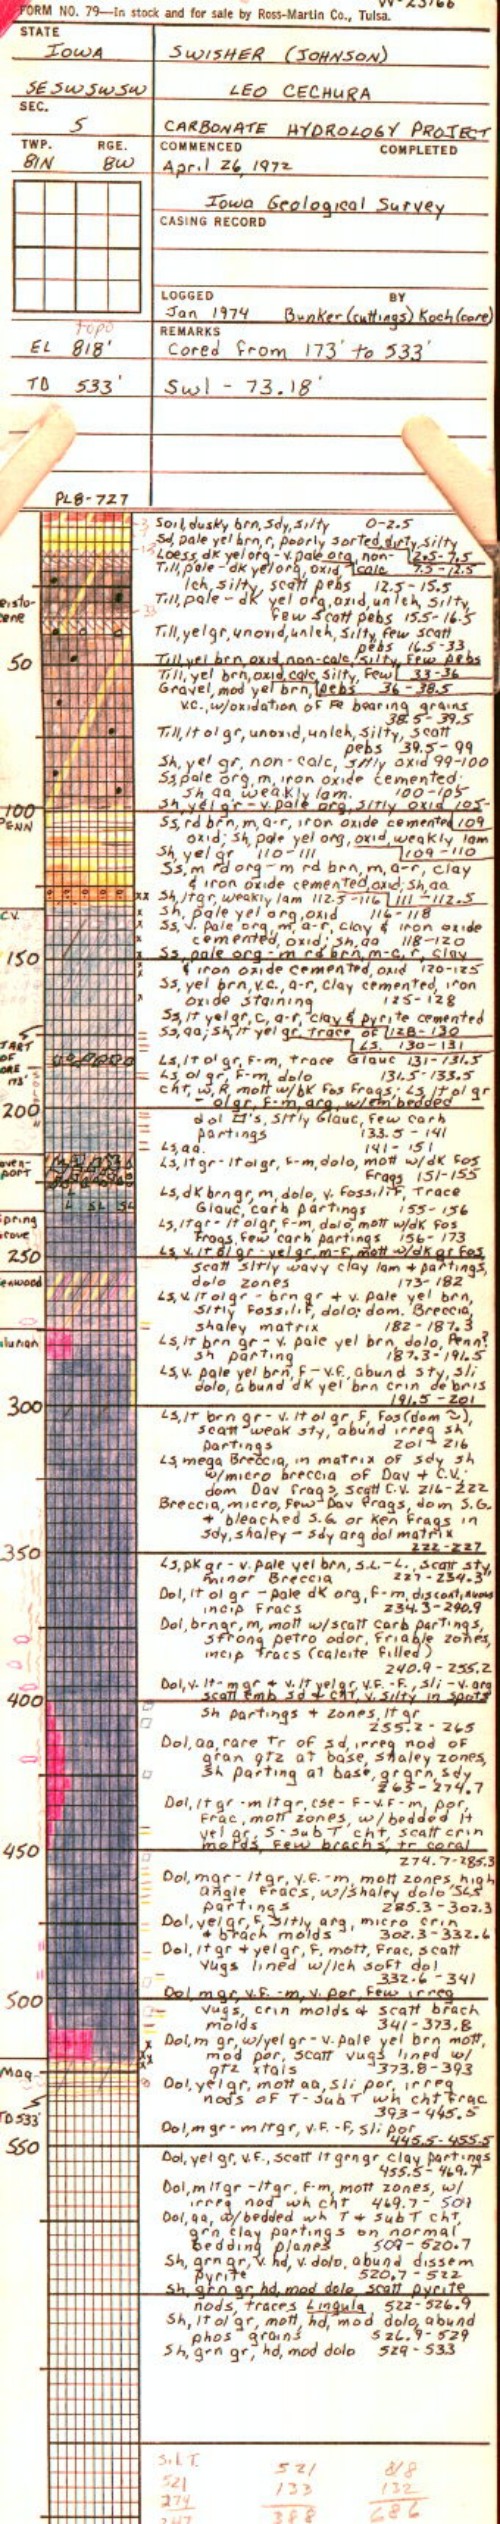 W-23766
FORM NO. 79—In stock and for sale by Ross-Martin Co., Tulsa.
STATE
IOWA
SWISHER (JOHNSON)
SE SW SW SW
LEO CECHURA
SEC.
5
CARBONATE HYDROLOGY PROJECT
TWP. RGE.
81N 8W
COMMENCED COMPLETED
April 26, 1972
Iowa Geological Survey
CASING RECORD
LOGGED BY
Jan 1974 Bunker (cuttings) Koch (core)
topo
EL 818'
REMARKS
Cored from 173' to 533'
TD 533'
Swl - 73.18'
PLB-727
Soil, dusky brn, sdy, silty 0-2.5
Sd, pale yel brn, r, poorly sorted, dirty, silty
Loess, dk yel org - v. pale org, non- 2.5-7.5
Till, pale - dk yel org, oxid, calc 7.5-12.5
lch, silty, scatt pebs 12.5-15.5
Till, pale - dk yel org, oxid, unlch, silty,
few scatt pebs 15.5-16.5
Till, yel gr, unoxid, unlch, silty, few scatt
pebs 16.5-33
Till, yel brn, oxid, non-calc, silty, few pebs
Till, yel brn, oxid, calc, silty, few 33-36
Gravel, mod yel brn, pebs 36-38.5
v.c., w/oxidation of Fe bearing grains
38.5-39.5
Till, lt ol gr, unoxid, unlch, silty, scatt
pebs 39.5-99
Sh, yel gr, non-calc, sltly oxid 99-100
Ss, pale org, m, iron oxide cemented;
sh, aa, weakly lam. 100-105
Sh, yel gr - v. pale org, sltly oxid 105-
Ss, rd brn, m, a-r, iron oxide cemented 109
oxid; sh, pale yel org, oxid, weakly lam
Sh, yel gr 110-111 109-110
Ss, m rd org - m rd brn, m, a-r, clay
& iron oxide cemented, oxid; Sh, aa
Sh, ltgr, weakly lam 112.5-116 111-112.5
Sh, pale yel org, oxid 116-118
Ss, v. pale org, m, a-r, clay & iron oxide
cemented, oxid; sh, aa 118-120
Ss, pale org - m rd brn, m-c, r, clay
& iron oxide cemented, oxid 120-125
Ss, yel brn, v.c., a-r, clay cemented, iron
oxide staining 125-128
Ss, lt yel gr, c, a-r, clay & pyrite cemented
Ss, aa; Sh, lt yel gr, trace of 128-130
Ls. 130-131
Ls, lt ol gr, f-m, trace Glauc 131-131.5
Ls, ol gr, f-m, dolo 131.5-133.5
cht, w, R mott w/bk fos frags; Ls, lt ol gr
- ol gr, f-m, arg, w/em bedded
dol □'s, sltly Glauc, few carb
partings 133.5-141
Ls, aa. 141-151
Ls, lt gr - lt ol gr, f-m, dolo, mott w/dk fos
frags 151-155
Ls, dk brn gr, m, dolo, v. fossilif, trace
Glauc, carb partings 155-156
Ls, lt gr - lt ol gr, f-m, dolo, mott w/dk fos
frags, few carb partings 156-173
Ls, v. lt ol gr - yel gr, m-f, mott w/dk gr fos,
scatt sltly wavy clay lam & partings,
dolo zones 173-182
Ls, v. lt ol gr - brn gr & v. pale yel brn,
sltly fossilif, dolo; dom. Breccia,
shaley matrix 182-187.3
Ls, lt brn gr - v. pale yel brn, dolo, Penn?
sh parting 187.3-191.5
Ls, v. pale yel brn, f-v.f., abund sty, sli
dolo, abund dk yel brn crin debris
191.5-201
Ls, lt brn gr - v. lt ol gr, f, fos (dom ),
scatt weak sty, abund irreg sh
partings 201-216
Ls, mega Breccia, in matrix of sdy sh
w/micro breccia of Dav & C.V.;
dom Dav frags, scatt C.V. 216-222
Breccia, micro, few Dav frags, dom S.G.
& bleached S.G. or Ken frags in
sdy, shaley - sdy arg dol matrix
222-227
Ls, pk gr - v. pale yel brn, S.L.-L., scatt sty,
minor Breccia 227-234.3
Dol, lt ol gr - pale dk org, f-m, discontinuous
incip fracs 234.3-240.9
Dol, brn gr, m, mott w/scatt carb partings,
strong petro odor, friable zones,
incip fracs (calcite filled)
240.9-255.2
Dol, v. lt - m gr & v. lt yel gr, v.f.-f., sli - v. arg
scatt emb sd & cht, v. silty in spots
Sh partings & zones, lt gr
255.2-265
Dol, aa, rare Tr of sd, irreg nod of
gran qtz at base, shaley zones,
sh parting at base, gr grn, sdy
265-274.7
Dol, lt gr - m lt gr, cse-f-v.f-m, por,
frac, mott zones, w/bedded lt
yel gr, S-sub T cht, scatt crin
molds, few brachs, tr coral
274.7-285.3
Dol, m gr - lt gr, v.f.-m, mott zones, high
angle fracs, w/shaley dolo sls
partings 285.3-302.3
Dol, yel gr, f, sltly arg, micro crin
& brach molds 302.3-332.6
Dol, lt gr & yel gr, f, mott, frac, scatt
vugs lined w/lch soft dol
332.6-341
Dol, m gr, v.f.-m, v. por, few irreg
vugs, crin molds & scatt brach
molds 341-373.8
Dol, m gr, w/yel gr - v. pale yel brn mott,
mod por, scatt vugs lined w/
qtz xtals 373.8-393
Dol, yel gr, mott aa, sli por, irreg
nods of T-sub T wh cht frac
393-445.5
Dol, m gr - m lt gr, v.f.-f, sli por
445.5-455.5
Dol, yel gr, v.f., scatt lt grn gr clay partings
455.5-469.7
Dol, m lt gr - lt gr, f-m, mott zones, w/
irreg nod wh cht 469.7-509
Dol, aa, w/bedded wh T & sub T cht,
grn clay partings on normal
bedding planes 509-520.7
Sh, grn gr, v. hd, v. dolo, abund dissem
pyrite 520.7-522
Sh, grn gr, hd, mod dolo, scatt pyrite
nods, traces Lingula 522-526.9
Sh, lt ol gr, mott, hd, mod dolo, abund
phos grains 526.9-529
Sh, grn gr, hd, mod dolo 529-533
50
100
PENN
C.V.
150
START
OF
CORE
173'
200
Daven-
port
L
SL SL
Spring
Grove
250
Kenwood
Silurian
300
350
400
450
500
Maq
TD 533'
550
521 521 818
274 133 132
247 388 686